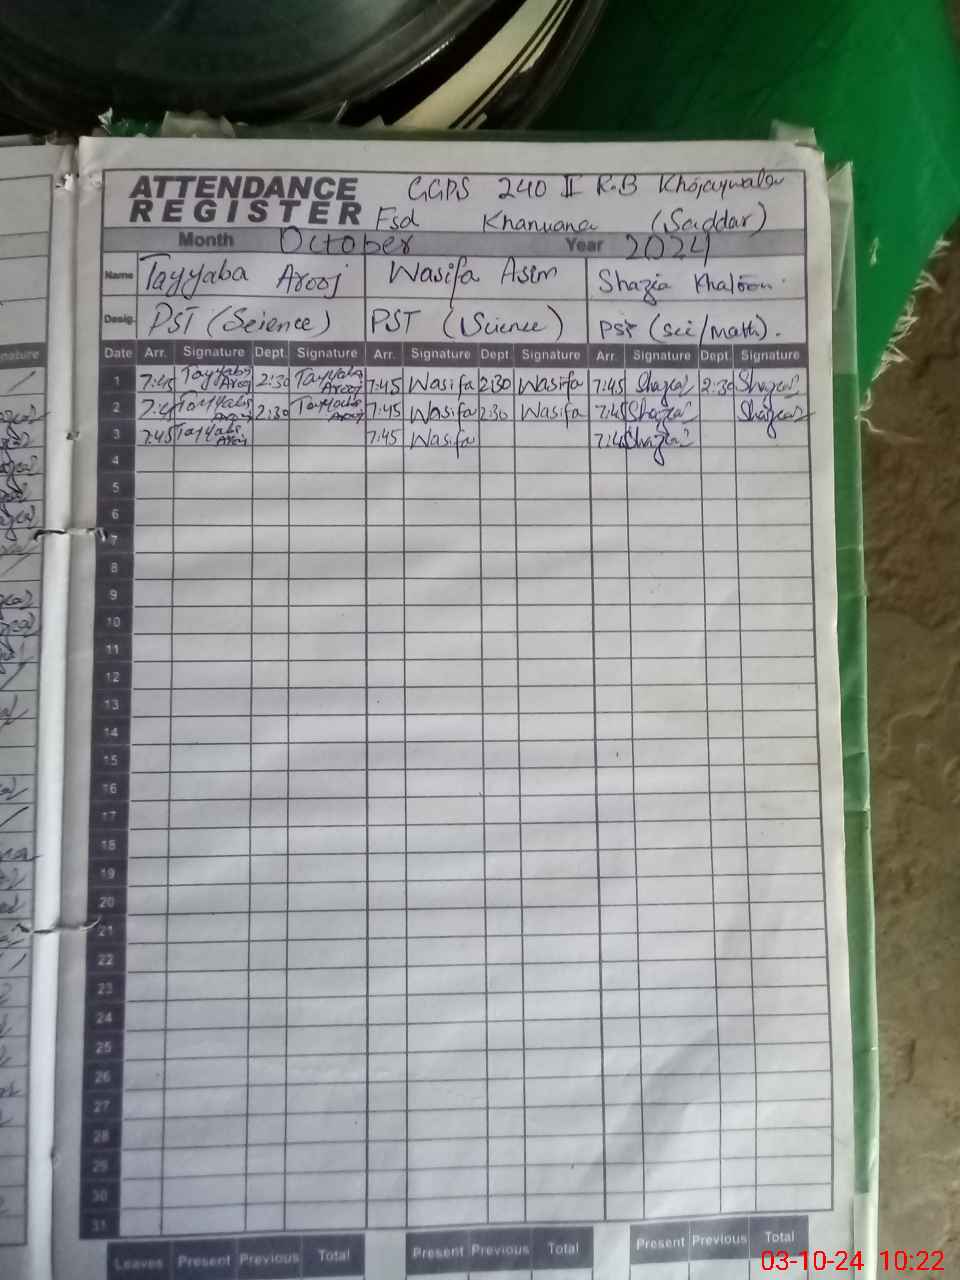 ATTENDANCE REGISTER
CGPS 240 II R.B Khojaywala
Fsd Khanuana (Saddar)
Month October Year 2024
Name Tayyaba Arooj Wasifa Asim Shazia Khatoon
Desig. PST (Science) PST (Science) PST (Sci/Math).
Date Arr. Signature Dept. Signature Arr. Signature Dept Signature Arr. Signature Dept. Signature
1 7:45 Tayyaba Arooj 2:30 Tayyaba Arooj 7:45 Wasifa 2:30 Wasifa 7:45 Shazia 2:30 Shazia
2 7:45 Tayyaba Arooj 2:30 Tayyaba Arooj 7:45 Wasifa 2:30 Wasifa 7:45 Shazia Shazia
3 7:45 Tayyaba Arooj 7:45 Wasifa 7:45 Shazia
4
5
6
7
8
9
10
11
12
13
14
15
16
17
18
19
20
21
22
23
24
25
26
27
28
29
30
31
Leaves Present Previous Total Present Previous Total Present Previous Total
03-10-24 10:22